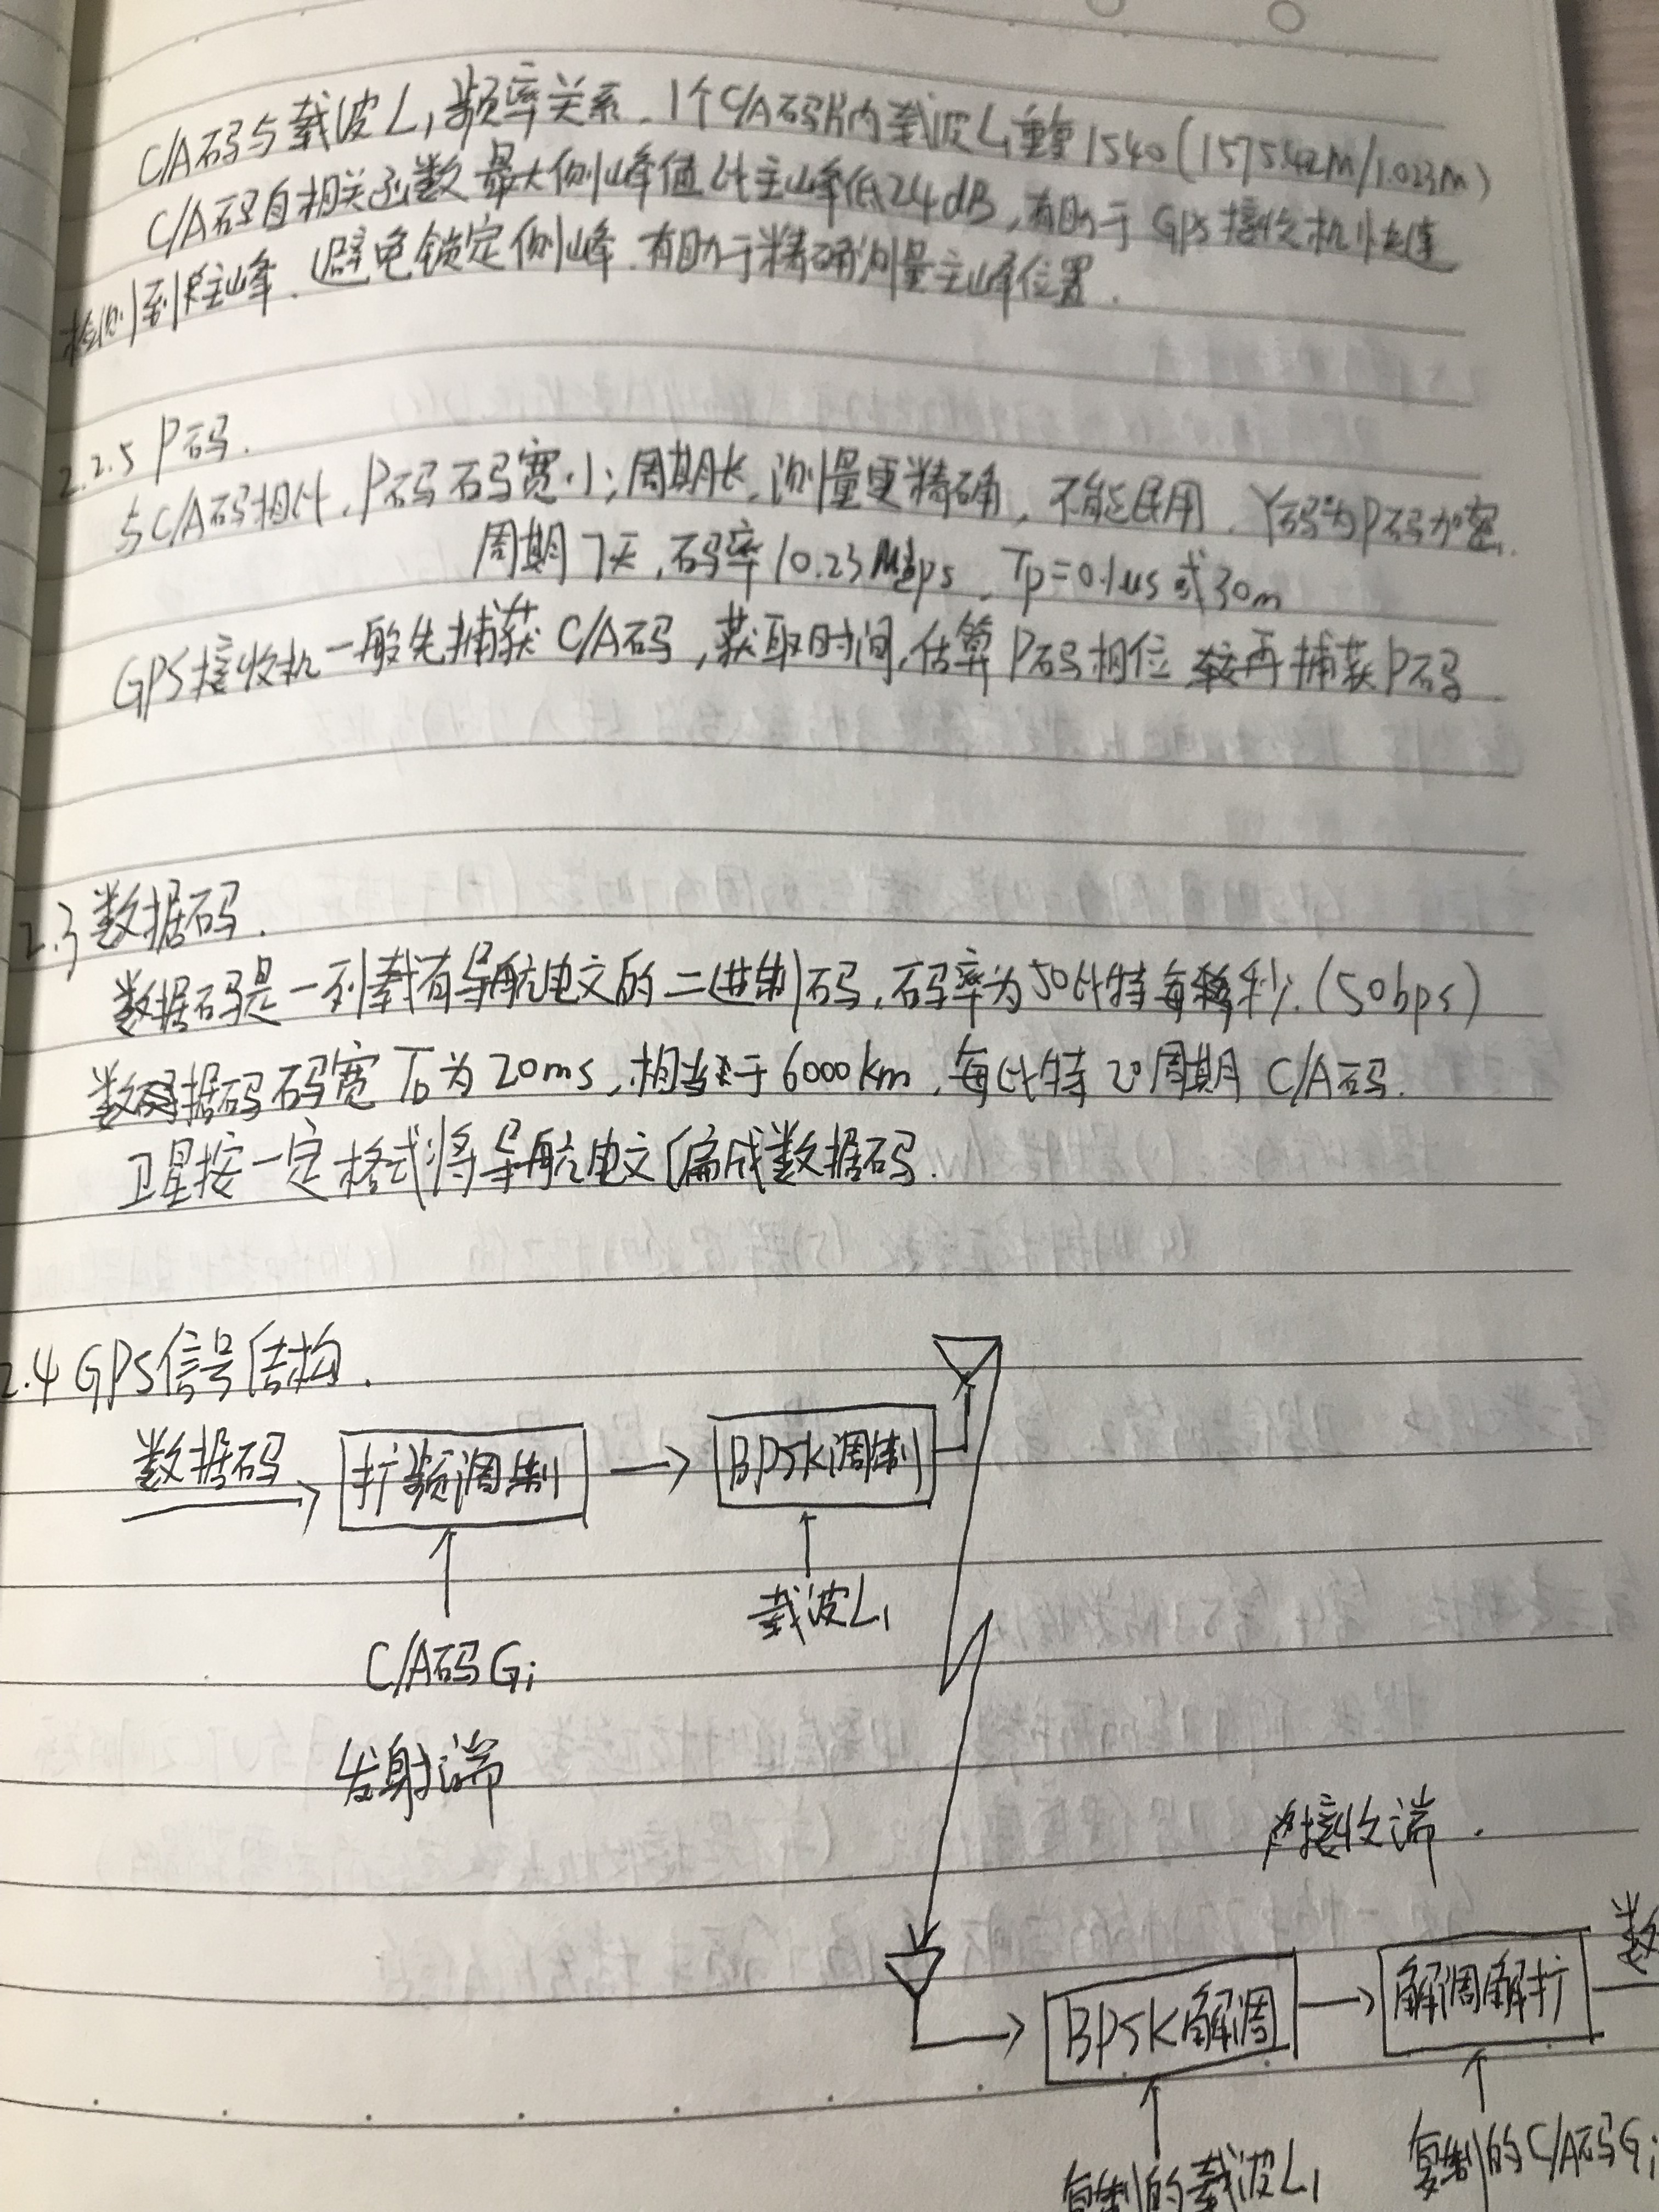 C/A码与载波L1频率关系. 1个C/A码片内载波L1重复1540(1575.42M/1.023M)
C/A码自相关函数最大侧峰值比主峰低24dB,有助于GPS接收机快速
检测到主峰、避免锁定侧峰.有助于精确测量主峰位置.
2.2.5 P码.
与C/A码相比,P码码宽小;周期长,测量更精确,不能民用.Y码为P码加密.
周期7天,码率10.23Mbps,Tp=0.1us或30m
GPS接收机一般先捕获C/A码,获取时间,估算P码相位 再捕获P码
2.3 数据码.
数据码是一列载有导航电文的二进制码,码率为50比特每秒.(50bps)
数据码码宽TD为20ms,相当于6000km,每比特20周期C/A码.
卫星按一定格式将导航电文编成数据码.
2.4 GPS信号结构.
数据码
扩频调制
BPSK调制
载波L1
C/A码Gi
发射端
接收端.
BPSK解调
解调解扩
数
复制的载波L1
复制的C/A码Gi